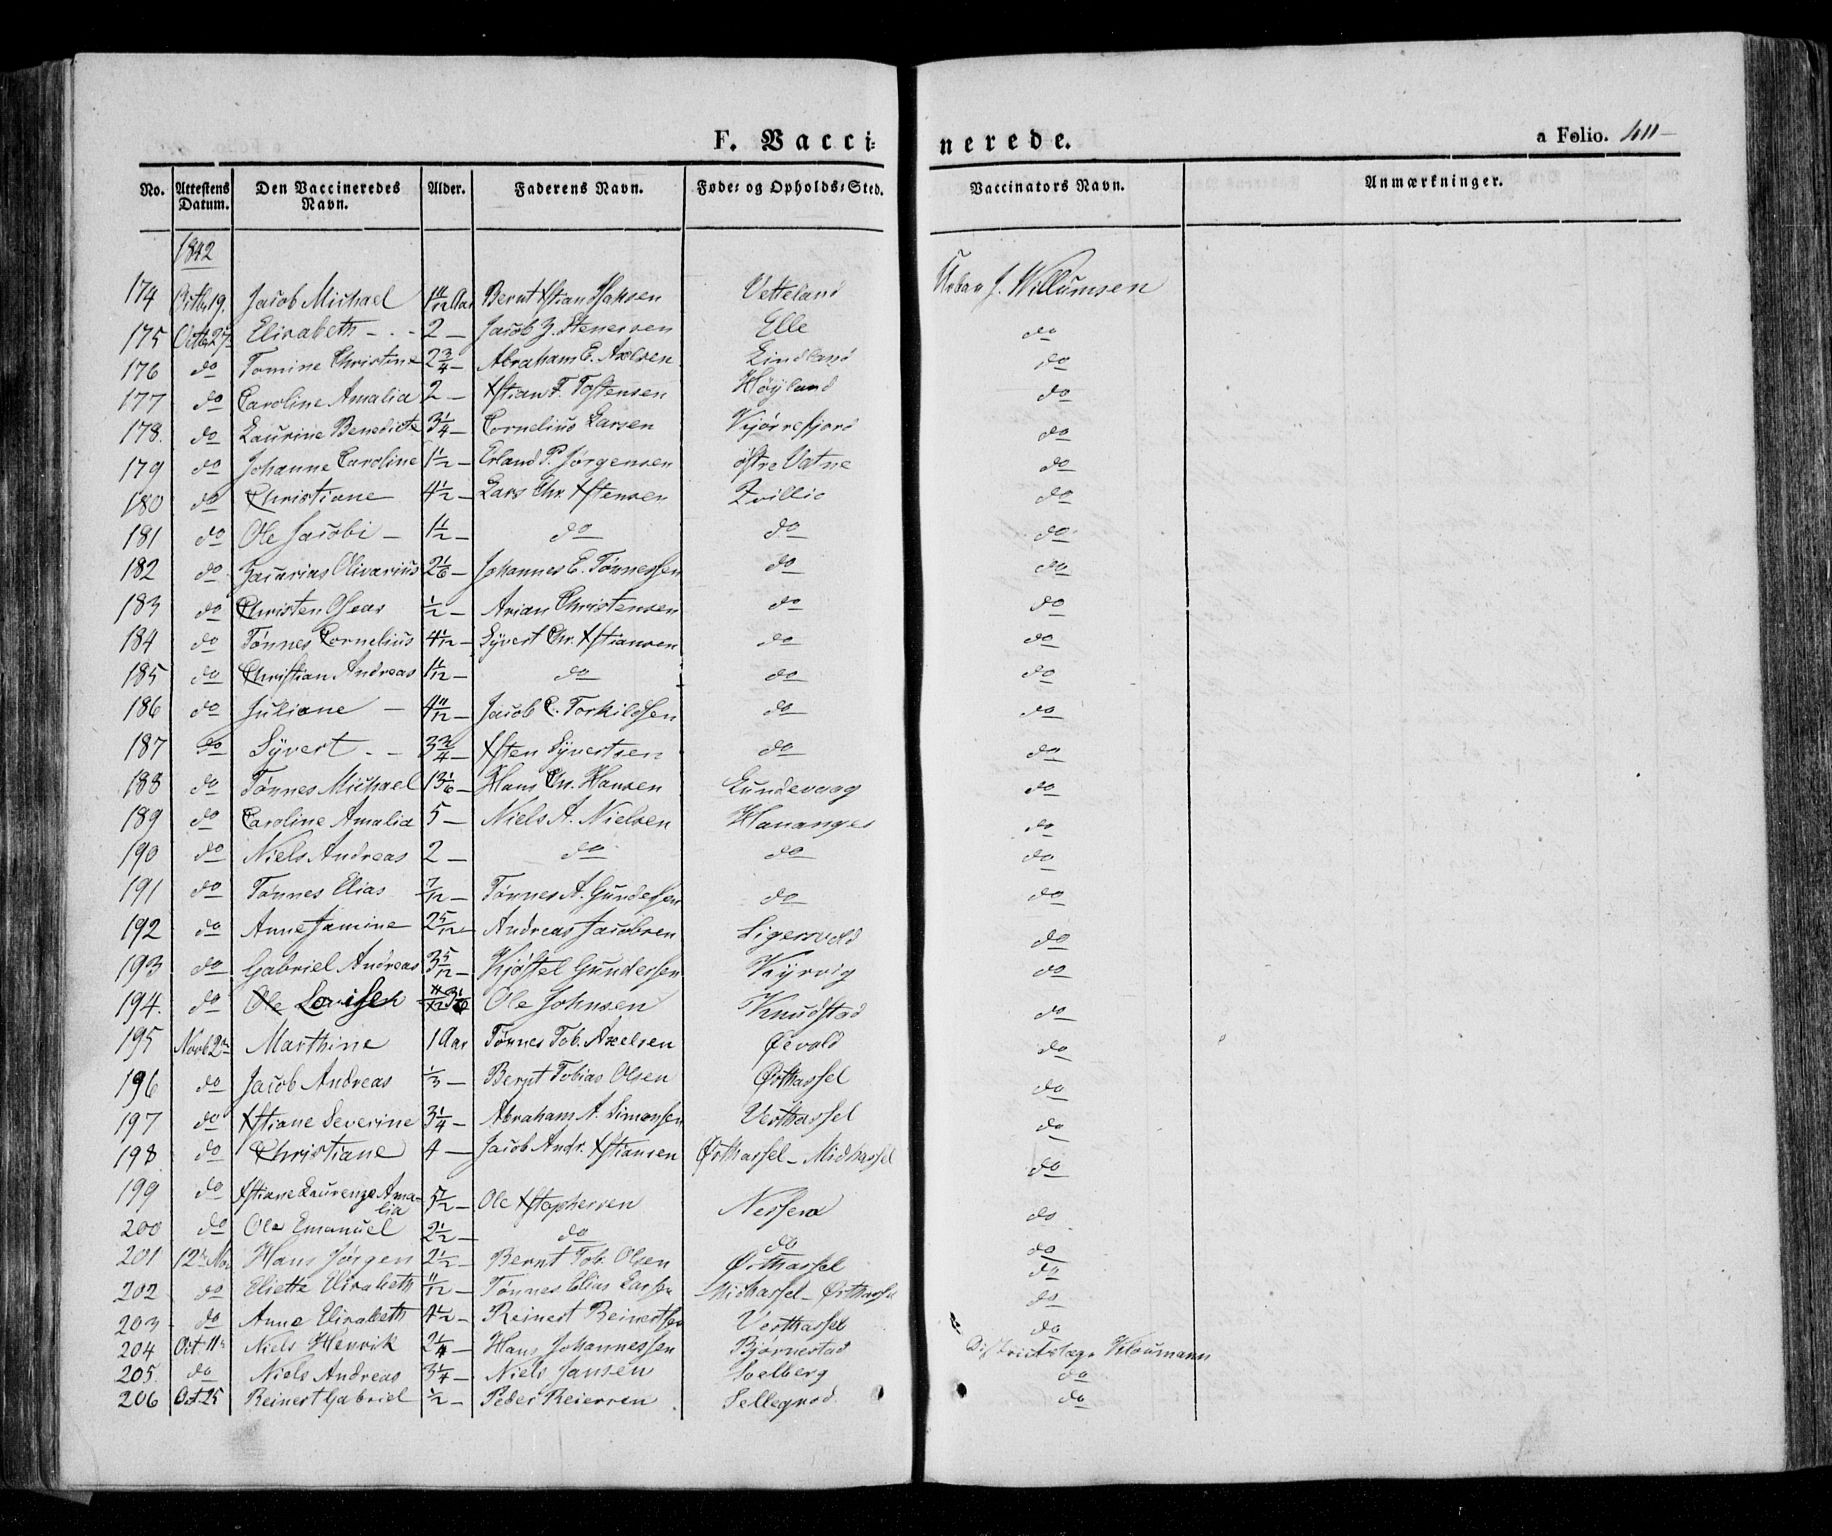 F. Vacci= nerede. a Folio. 411
No. Attestens Datum. Den Vaccineredes Navn. Alder. Faderens Navn. Føde= og Opholds=Sted. Vaccinators Navn. Anmærkninger.
1842
174 Octbr 19. Jacob Michael 1 11/12 Aar Bernt Xstian Hansen Vetteland Urban J. Willumsen
175 Octbr 27 Elisabeth - . - 2 — Jacob Z. Stenersen Elle do
176 do Tomine Christine 2 3/4 — Abraham E. Axelsen Lindland do
177 do Caroline Amalia 2 — Xstian F. Tostensen Høyland do
178. do Laurine Benedicte 3 1/4 — Cornelius Larsen Kjørrefjord do
179 do Johanne Caroline 1 1/2 — Erland P. Jørgensen østre Vatne do
180 do Christiane 4 1/2 — Lars Chr. Xstensen do
181 do Ole Jacobi — 1 1/2 — do do do
182 do Zacarias Olivarius 2 1/6 — Johannes E. Tønnessen do do
183 do Christen Oseas 1/2 — Arian Christensen do do
184 do Tønnes Cornelius 4 1/12 — Syvert Chr. Xstiansen do do
185 do Christian Andreas 1 1/12 — do do do
186 do Juliane — 4 11/12 — Jacob C. Torkildsen do do
187 do Syvert . — 3 3/4 — Xsten Syvertsen do do
188 do Tønnes Michael 13 1/6 — Hans Chr. Hansen Lundevaag do
189 do Caroline Amalia 5 — Niels A. Nielsen Hananger do
190 do Niels Andreas 2 — do do do
191 do Tønnes Elias 7/12 — Tønnes A. Gundersen do do
192 do Anne Jamine 2 5/12 — Andreas Jacobsen Ligersvold do
193 do Gabriel Andreas 3 5/12 — Kjøstel Gundersen Kyrvig do
194. do Ole Lovise 3 1/6 Ole Johnsen Knudstad do
195 Novb 2den Marthine 1 Aar Tønnes Tob. Axelsen Øevold do
196 do Jacob Andreas 1/3 — Bernt Tobias Olsen Østhassel do
197 do Xstiane Severine 3 1/4 — Abraham A. Simonsen Vesthassel do
198 do Christiane 4 — Jacob Andr. Xstiansen Østhassel — Midhassel do
199 do Xstiane Laurenze Ama-
lia 5 1/2 — Ole Xstophersen do
200 do Ole Emanuel 2 1/2 — do do do
201 12te Nov Hans Jørgen 2 1/2 — Bernt Tob. Olsen Østhassel do
202 do Eliette Elisabeth 11/12 — Tønnes Elias Larsen Midhassel — Østhassel do
203 do Anne Elisabeth 4 1/2 — Reinert Reinertsen Vesthassel do
204 Oct. 11te Niels Henrik 2 1/4 — Hans Johannessen Bjørnestad Districtslæge Kloumann
205. do Niels Andreas 3 1/4 — Niels Jansen Soelberg do
206 Oct. 25 Reinert Gabriel 1/2 — Peder Reiersen Sellegrod do